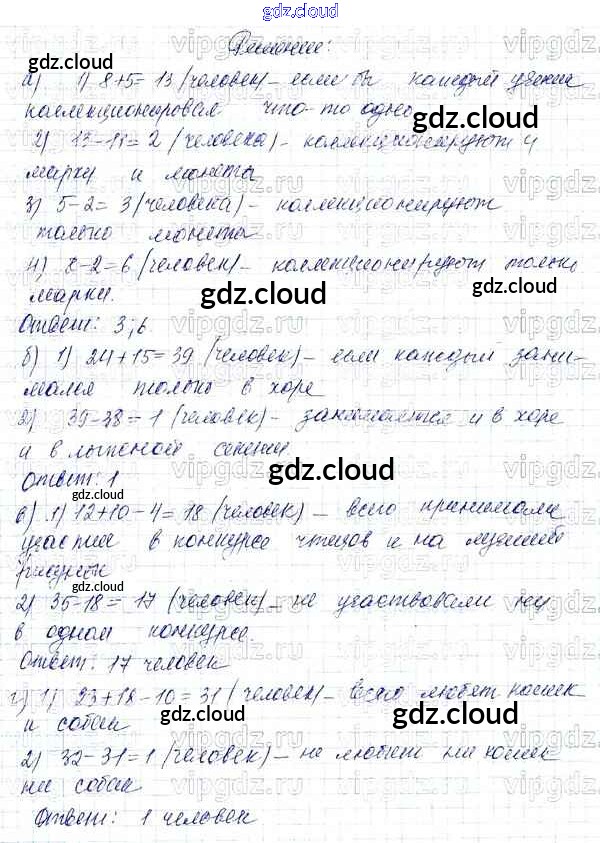 gdz.cloud
Решение:
а) 1) 8+5=13 (человек) – если бы каждый ученик
коллекционировал что-то одно
gdz.cloud
2) 13-11=2 (человека) – коллекционируют и
марки и монеты
3) 5-2=3 (человека) – коллекционируют
только монеты
4) 8-2=6 (человек) – коллекционируют только
марки.
gdz.cloud
Ответ: 3; 6.
б) 1) 24+15=39 (человек) – если каждый зани-
мался только в хоре
gdz.cloud
2) 39-38=1 (человек) – занимается и в хоре
и в лыжной секции.
gdz.cloud
Ответ: 1
gdz.cloud
в) 1) 12+10-4=18 (человек) – всего принимали
участие в конкурсе чтецов и на лучший
рисунок
gdz.cloud
2) 35-18=17 (человек) – не участвовали ни
в одном конкурсе.
gdz.cloud
Ответ: 17 человек
г) 1) 23+18-10=31 (человек) – всего любят кошек
и собак
gdz.cloud
gdz.cloud
2) 32-31=1 (человек) – не любит ни кошек
ни собак
gdz.cloud
Ответ: 1 человек